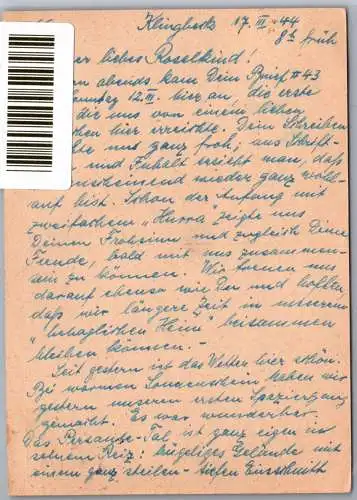 Klingbeck 17. III. 44
8h früh
er liebes Roselkind!
n abends kam Dein Brief #43
onntag 12. III. hier an, die erste
die uns von einem lieben
chen hier erreichte. Dein Schreiben
hte uns ganz froh; aus Schrift-
und Inhalt ersieht man, daß
nscheinend wieder ganz wohl-
auf bist. Schon der Anfang mit
zweifachem „Hurra" zeigte uns
Deinen Frohsinn und zugleich Deine
Freude, bald mit uns zusammen-
sein zu können. Wir freuen uns
darauf ebenso wie Du und hoffen,
daß wir längere Zeit in unserem
„behaglichen Heim" beisammen
bleiben können. -
Seit gestern ist das Wetter hier schön.
Bei warmem Sonnenschein haben wir
gestern unseren ersten Spaziergang
gemacht. Es war wunderbar.
Das Persante-Tal ist ganz eigen in
seinem Reiz: hügeliges Gelände mit
einem ganz steilen - tiefen Einschnitt